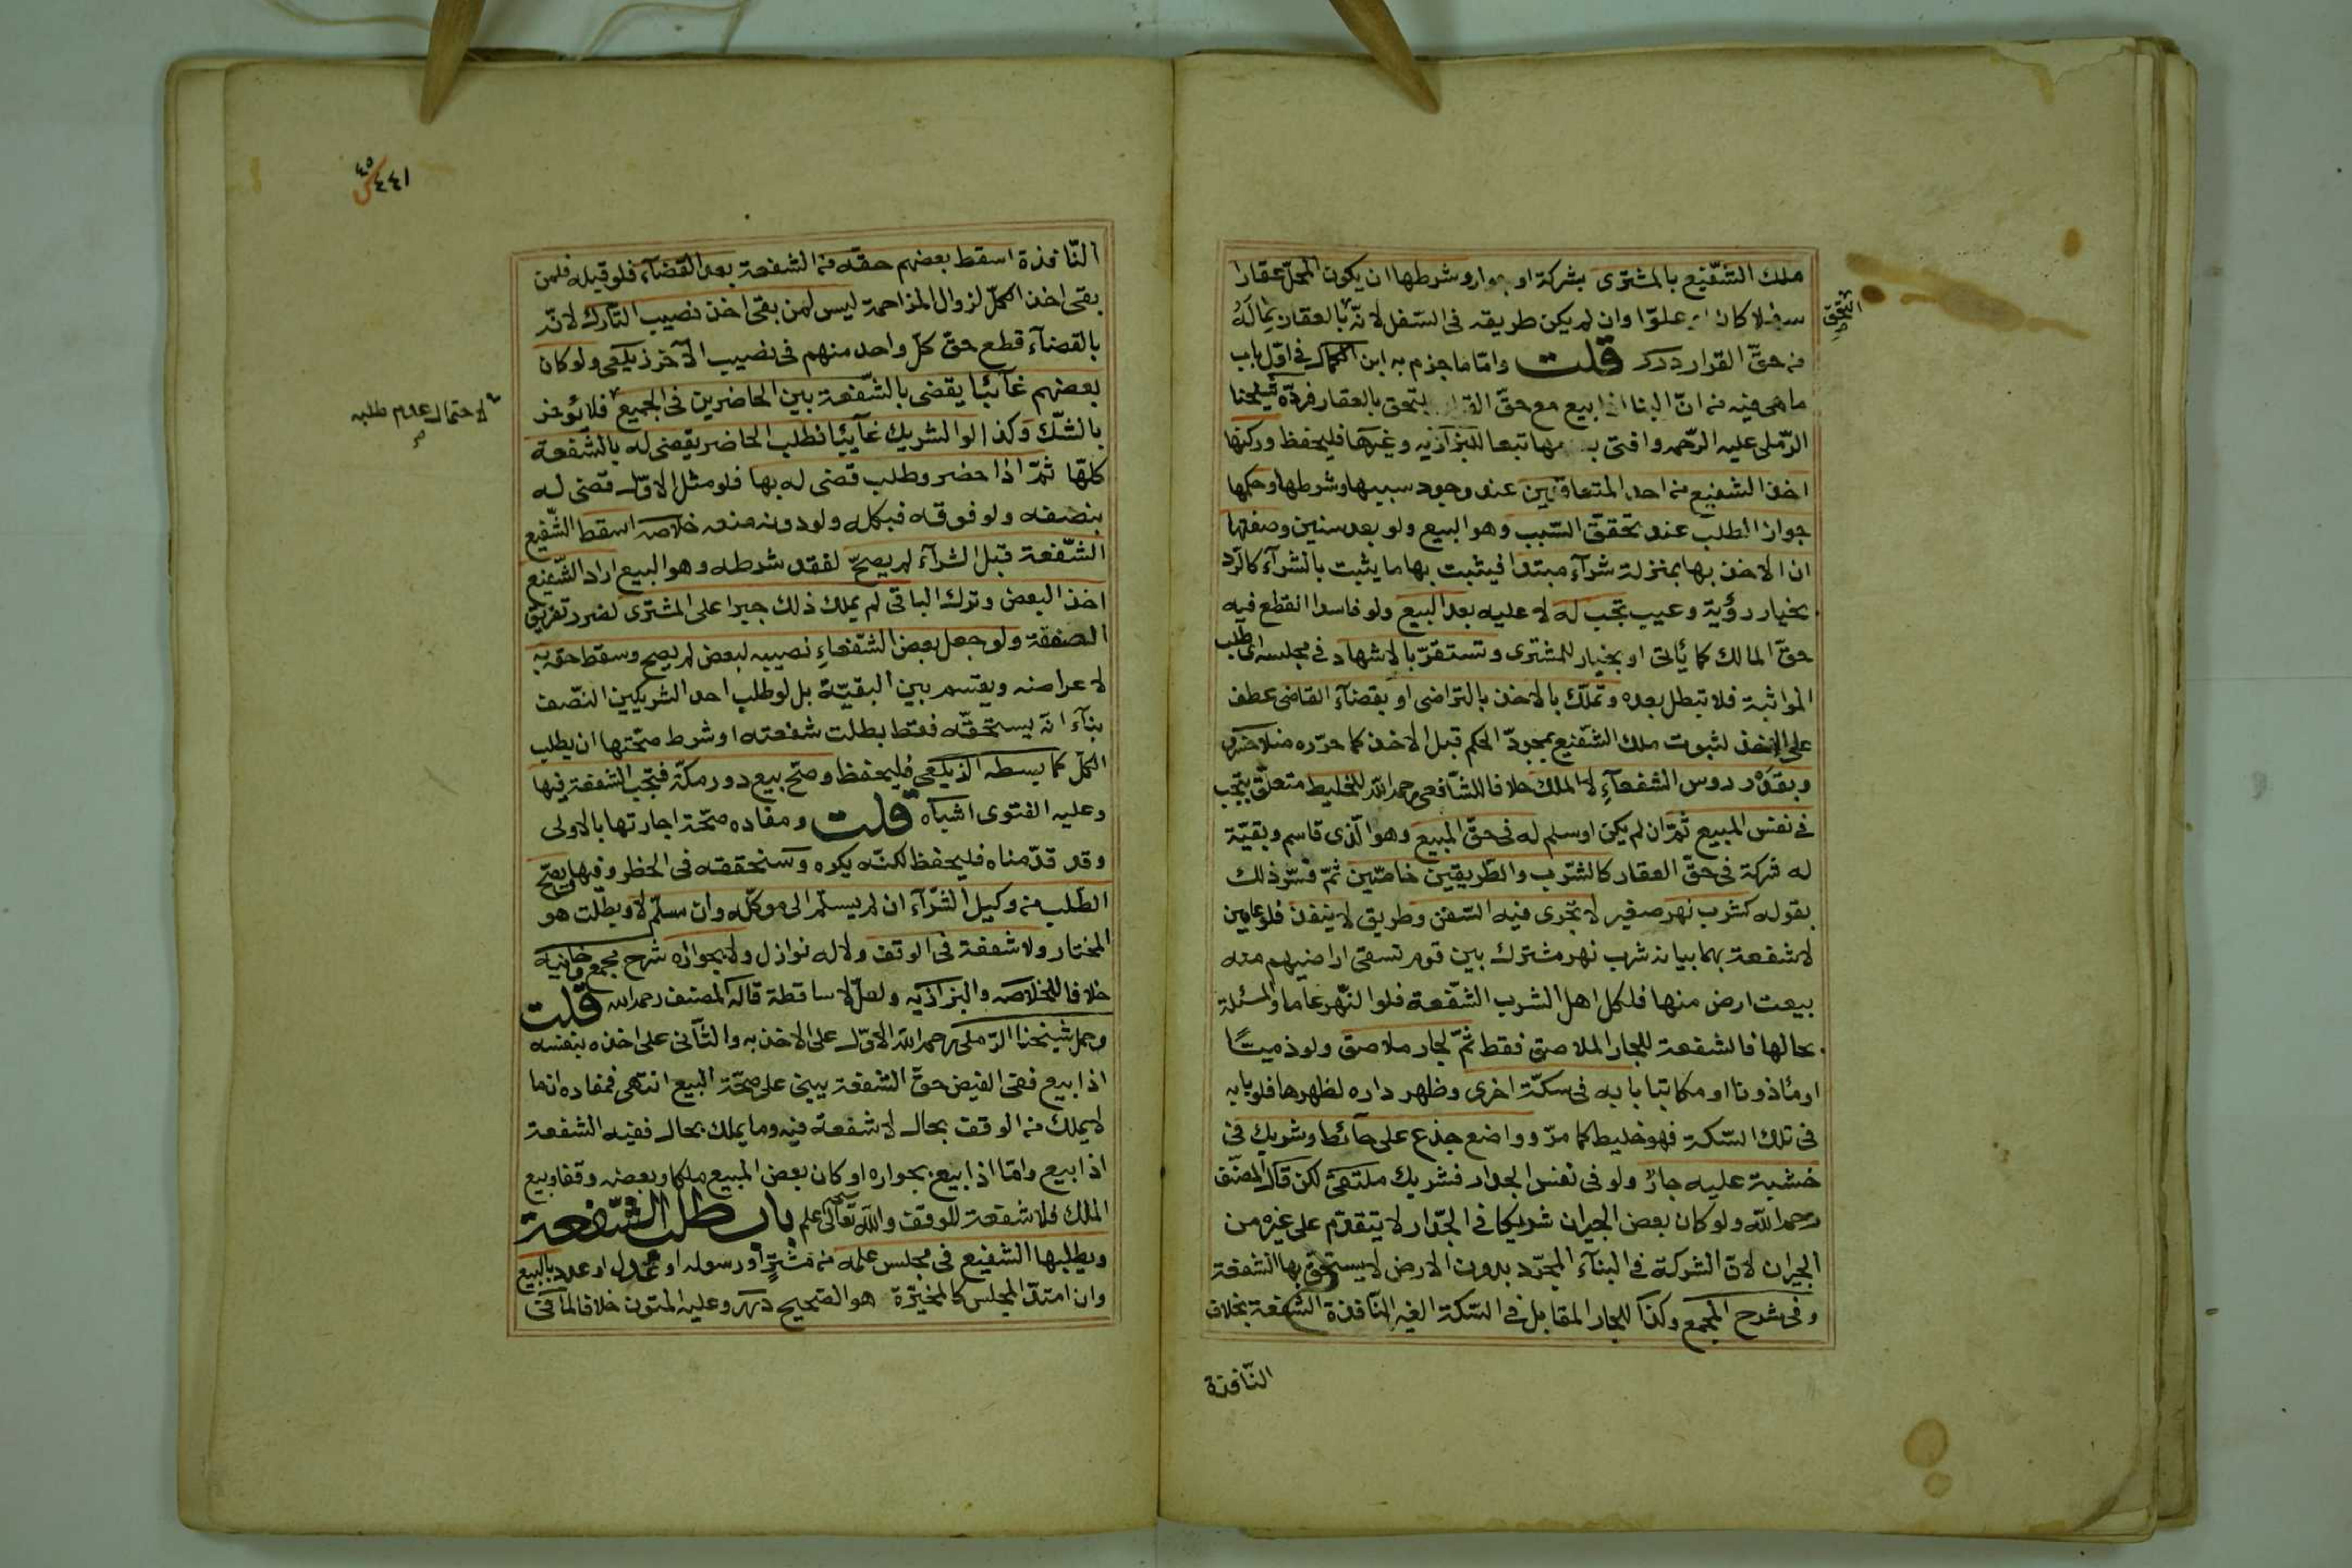 ملك الشفيع بالمشترى بشركة او جوار وشرطها ان يكون المحل عقارا
سفلا كان او علوا وان لم يكن طريقه فى السفل لانه بالعقار بماله
التحق
صح
من حق القرار درر قلت واما ما جزم به ابن الكمال فى اول باب
ما هى فيه من ان البنا اذا بيع مع حق القرار يلتحق بالعقار فرده شيخنا
الرملى عليه الرحمه وافتى بعدمها تبعا للبزازيه وغيرها فليحفظ وركنها
اخذ الشفيع من احد المتعاقدين عند وجود سببها وشرطها وحكمها
جواز الطلب عند تحقق السبب وهو البيع ولو بعد سنين وصفتها
ان الاخذ بها بمنزلة شرآء مبتدا فيثبت بها ما يثبت بالشرآء كالرد
بخيار رؤية وعيب تجب له لا عليه بعد البيع ولو فاسدا انقطع فيه
حق المالك كما يأتى او بخيار للمشترى وتستقر بالاشهاد فى مجلسه اى طلب
المواثبة فلا تبطل بعده وتملك بالاخذ بالتراضى او بقضآء القاضى عطف
على الاخذ لثبوت ملك الشفيع بمجرد الحكم قبل الاخذ كما حرره منلاخسرو
وبقدر روس الشفعآء لا الملك خلافا للشافعى رحمه الله للخليط متعلق بتجب
فى نفس المبيع ثم ان لم يكن او سلم له فى حق المبيع وهو الذى قاسم وبقيت
له شركة فى حق العقار كالشرب والطريقين خاصين ثم فسر ذلك
بقوله كشرب نهر صغير لا تجرى فيه السفن وطريق لا ينفذ فلو عامين
لا شفعة بهما بيانه شرب نهر مشترك بين قوم تسقى اراضيهم منه
بيعت ارض منها فلكل اهل الشرب الشفعة فلو النهر عاما والمسئلة
بحالها فالشفعة للجار الملاصق فقط ثم لجار ملاصق ولو ذميا
او مأذونا او مكاتبا بابه فى سكة اخرى وظهر داره لظهرها فلو بابه
فى تلك السكة فهو خليط كما مر وواضع جذع على حآئط وشريك فى
خشبة عليه جار ولو فى نفس الجدار فشريك ملتقى لكن قال المصنف
رحمه الله ولو كان بعض الجيران شريكا فى الجدار لا يتقدم على غيره من
الجيران لان الشركة فى البنآء المجرد بدون الارض لا يستحق بها الشفعة
وفى شرح المجمع وكذا للجار المقابل فى السكة الغير النافذة الشفعة بخلاف
النافذة
٤٤١
٤٥
النافذة اسقط بعضهم حقه من الشفعة بعد القضآء فلو قبله فلمن
بقى اخذ الكل لزوال المزاحمة ليس لمن بقى اخذ نصيب التارك لانه
بالقضآء قطع حق كل واحد منهم فى نصيب الآخر زيلعى ولو كان
بعضهم غآئبا يقضى بالشفعة بين الحاضرين فى الجميع فلا يؤخر
لاحتمال عدم طلبه
صح
بالشك وكذا لو الشريك غآئبا فطلب الحاضر يقضى له بالشفعة
كلها ثم اذا حضر وطلب قضى له بها فلو مثل الاول قضى له
بنصفه ولو فوقه فبكله ولو دونه منعه خلاصه اسقط الشفيع
الشفعة قبل الشرآء لم يصح لفقد شرطه وهو البيع اراد الشفيع
اخذ البعض وترك الباقى لم يملك ذلك جبرا على المشترى لضرر تفريق
الصفقة ولو جعل بعض الشفعاء نصيبه لبعض لم يصح وسقط حقه به
لاعراضه ويقسم بين البقية بل لو طلب احد الشريكين النصف
بنآء انه يستحقه فقط بطلت شفعته اذ شرط صحتها ان يطلب
الكل كما بسطه الزيلعى فليحفظ وصح بيع دور مكة فتجب الشفعة فيها
وعليه الفتوى اشباه قلت ومفاده صحة اجارتها بالاولى
وقد قدمناه فليحفظ لكنه يكره وسنحققه فى الحظر وفيها يصح
الطلب من وكيل الشرآء ان لم يسلم الى موكله وان سلم لا وبطلت هو
المختار ولا شفعة فى الوقف ولا له نوازل ولا بجواره شرح مجمع وخانيه
خلافا للخلاصه والبزازيه ولعل لا ساقطة قاله المصنف رحمه الله قلت
وحمل شيخنا الرملى رحمه الله الاول على الاخذ به والثانى على اخذه بنفسه
اذا بيع ففى الفيض حق الشفعة يبنى على صحة البيع انتهى فمفاده ان ما
لا يملك من الوقف بحال لا شفعة فيه وما يملك بحال ففيه الشفعة
اذا بيع واما اذا بيع بجواره او كان بعض المبيع ملكا وبعضه وقفا وبيع
الملك فلا شفعة للوقف والله تعالى اعلم باب طلب الشفعة
ويطلبها الشفيع فى مجلس علمه من مشتر او رسوله او عدل او عدد بالبيع
وان امتد المجلس كالمخيرة هو الصحيح درر وعليه المتون خلافا لما فى